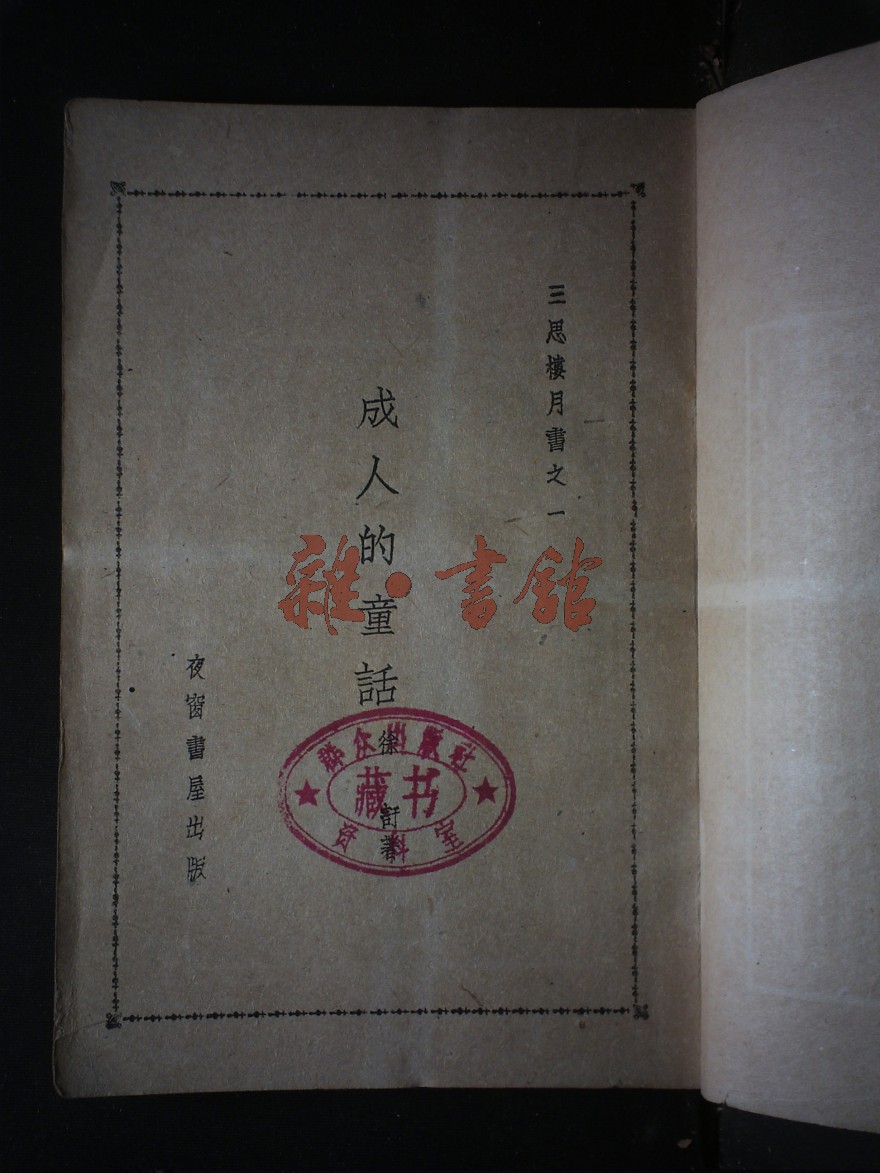 三思樓月書之一
成人的童話
徐訏著
夜窗書屋出版
群众出版社
藏书
资料室
雜·書館